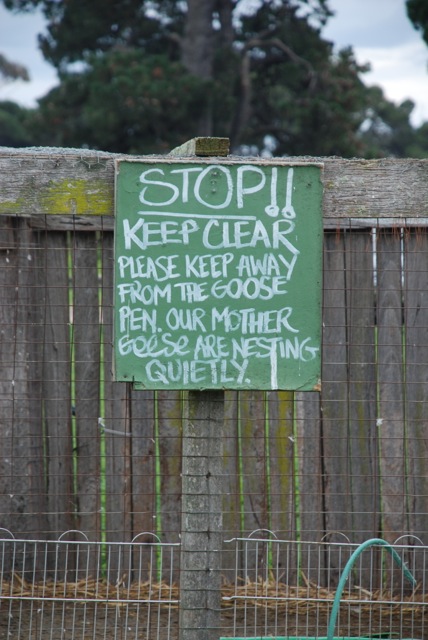 STOP!!
KEEP CLEAR
PLEASE KEEP AWAY
FROM THE GOOSE
PEN. OUR MOTHER
GEESE ARE NESTING
QUIETLY.